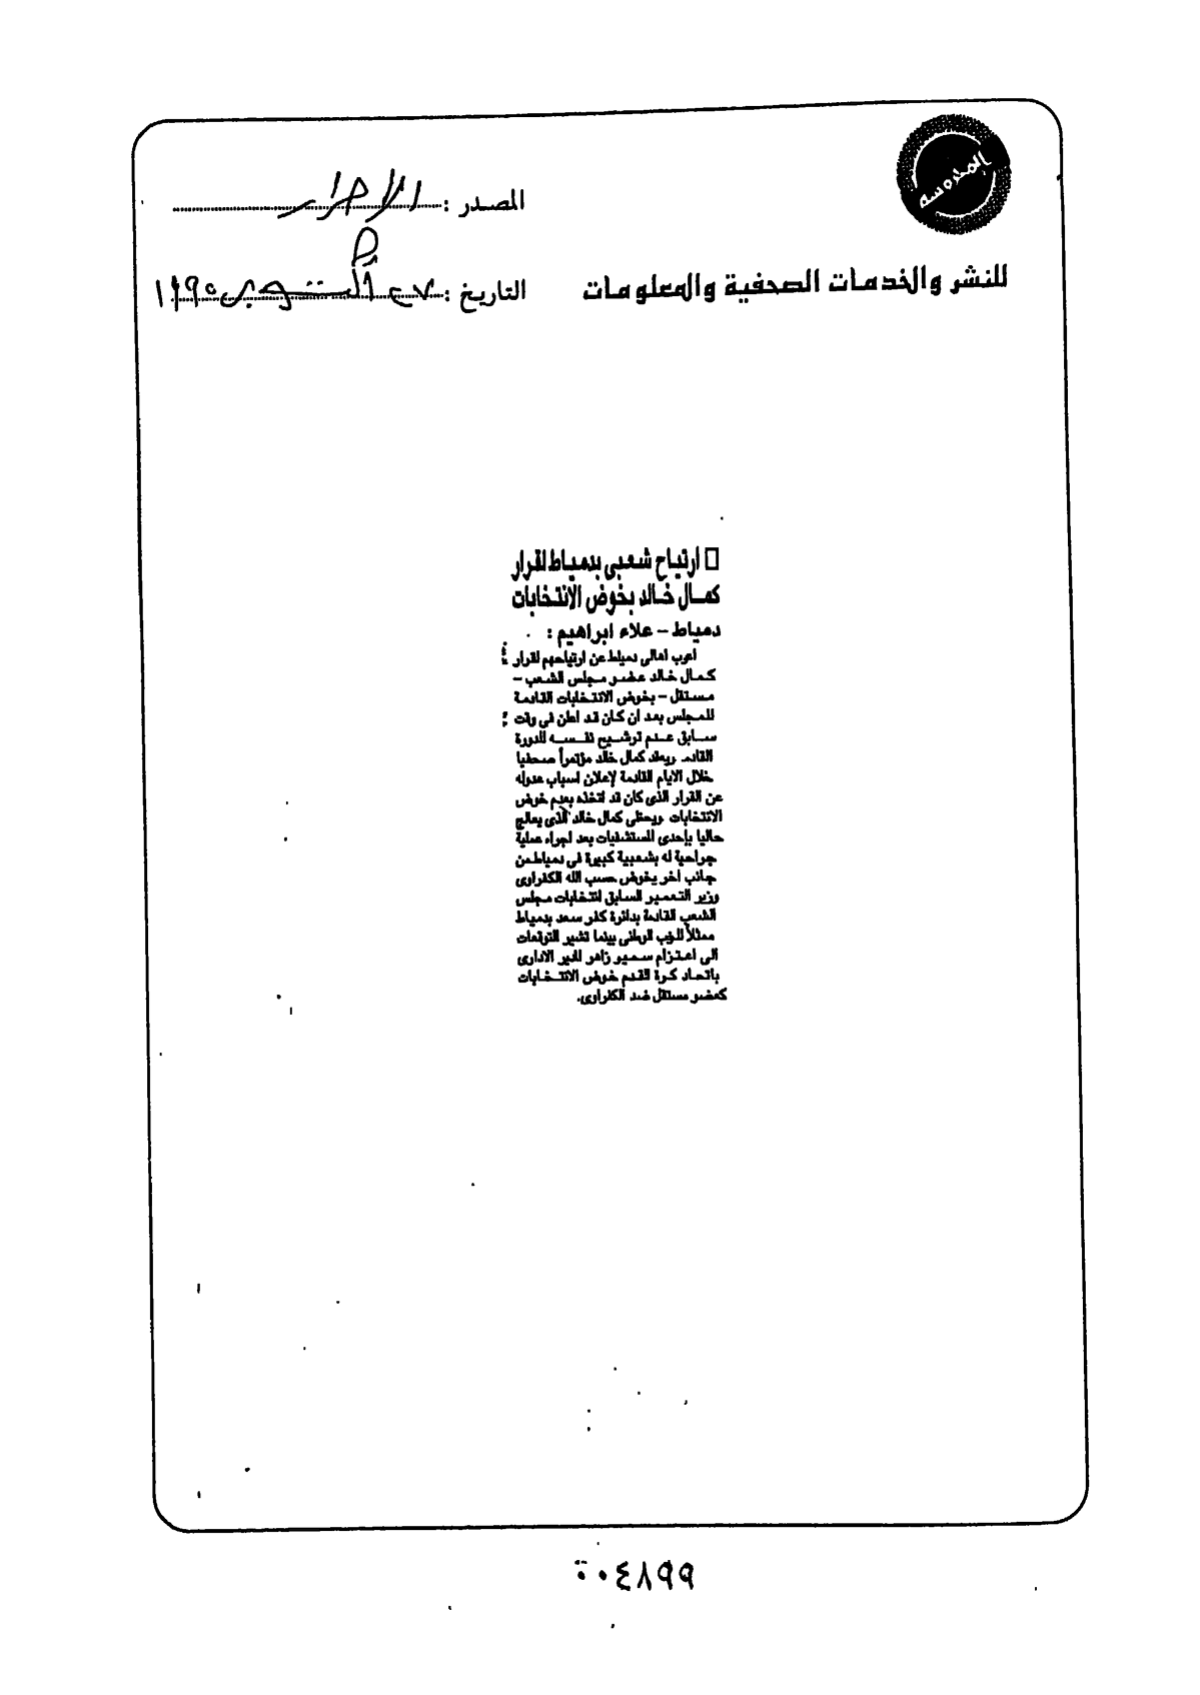 المحروسة
المصدر : الأحرار
للنشر والخدمات الصحفية والمعلومات
التاريخ : أكتوبر ١٩٩٥
□ ارتياح شعبى بدمياط لقرار
كمال خالد بخوض الانتخابات
دمياط – علاء ابراهيم :
اعرب اهالى دمياط عن ارتياحهم لقرار
كمال خالد عضو مجلس الشعب –
مستقل – بخوض الانتخابات القادمة
للمجلس بعد ان كان قد اعلن فى وقت
سابق عدم ترشيح نفسه للدورة
القادمة ويعقد كمال خالد مؤتمراً صحفيا
خلال الايام القادمة لإعلان اسباب عدوله
عن القرار الذى كان قد اتخذه بعدم خوض
الانتخابات ويحظى كمال خالد الذى يعالج
حاليا بإحدى المستشفيات بعد اجراء عملية
جراحية له بشعبية كبيرة فى دمياط من
جانب اخر يخوض حسب الله الكفراوى
وزير التعمير السابق انتخابات مجلس
الشعب القادمة بدائرة كفر سعد بدمياط
ممثلاً للحزب الوطنى بينما تشير التوقعات
الى اعتزام سمير زاهر المدير الادارى
باتحاد كرة القدم خوض الانتخابات
كعضو مستقل ضد الكفراوى.
٠٤٨٩٩